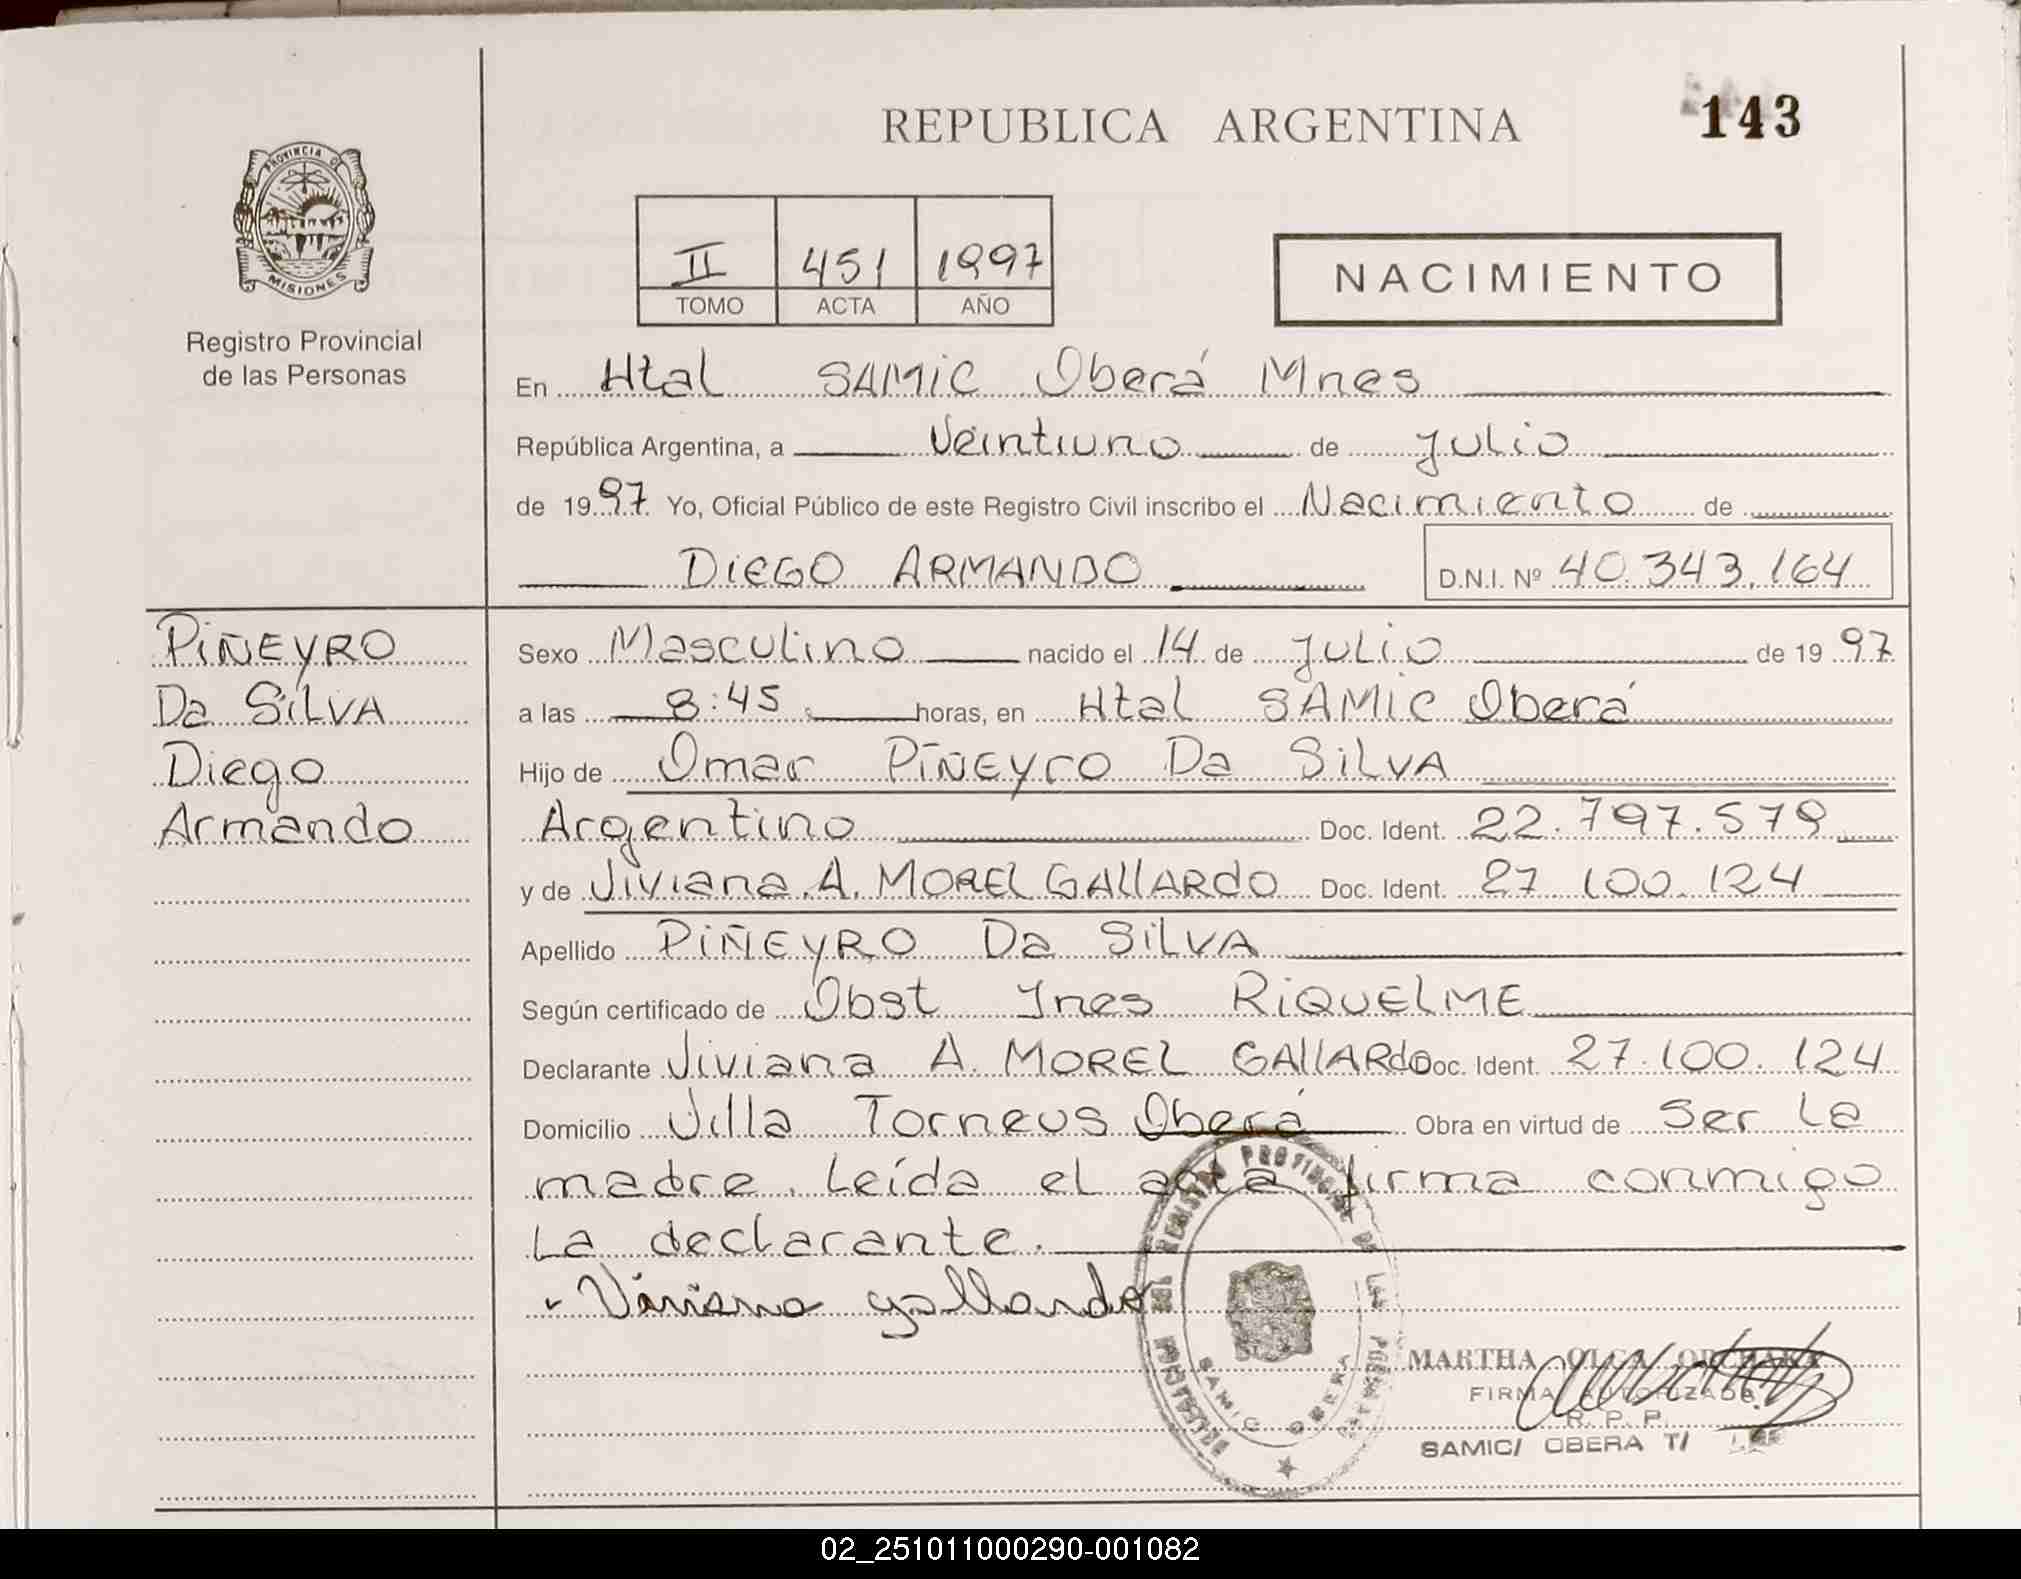 REPUBLICA ARGENTINA
143
PROVINCIA DE
MISIONES
Registro Provincial
de las Personas
II 451 1997
TOMO ACTA AÑO
NACIMIENTO
En Htal SAMIC Oberá Mnes
República Argentina, a Veintiuno de Julio
de 1997 Yo, Oficial Público de este Registro Civil inscribo el Nacimiento de
DIEGO ARMANDO D.N.I. Nº 40.343.164
PIÑEYRO
Da SILVA
Diego
Armando
Sexo Masculino nacido el 14 de Julio de 1997
a las 8:45 horas, en Htal SAMIC Oberá
Hijo de Omar PIÑEYRO Da SILVA
Argentino Doc. Ident. 22.797.579
y de Viviana A. MOREL GALLARDO Doc. Ident. 27 100.124
Apellido PIÑEYRO Da SILVA
Según certificado de Obst Ines RIQUELME
Declarante Viviana A. MOREL GALLARdO Doc. Ident. 27.100.124
Domicilio Villa Torneus Oberá Obra en virtud de ser la
madre. Leída el acta firma conmigo
La declarante.
Viviana gallardo
REGISTRO PROVINCIAL DE LAS PERSONAS
SAMIC OBERA
MARTHA OLGA
FIRMA AUTORIZADA
R. P. P.
SAMIC/ OBERA T/
02_251011000290-001082